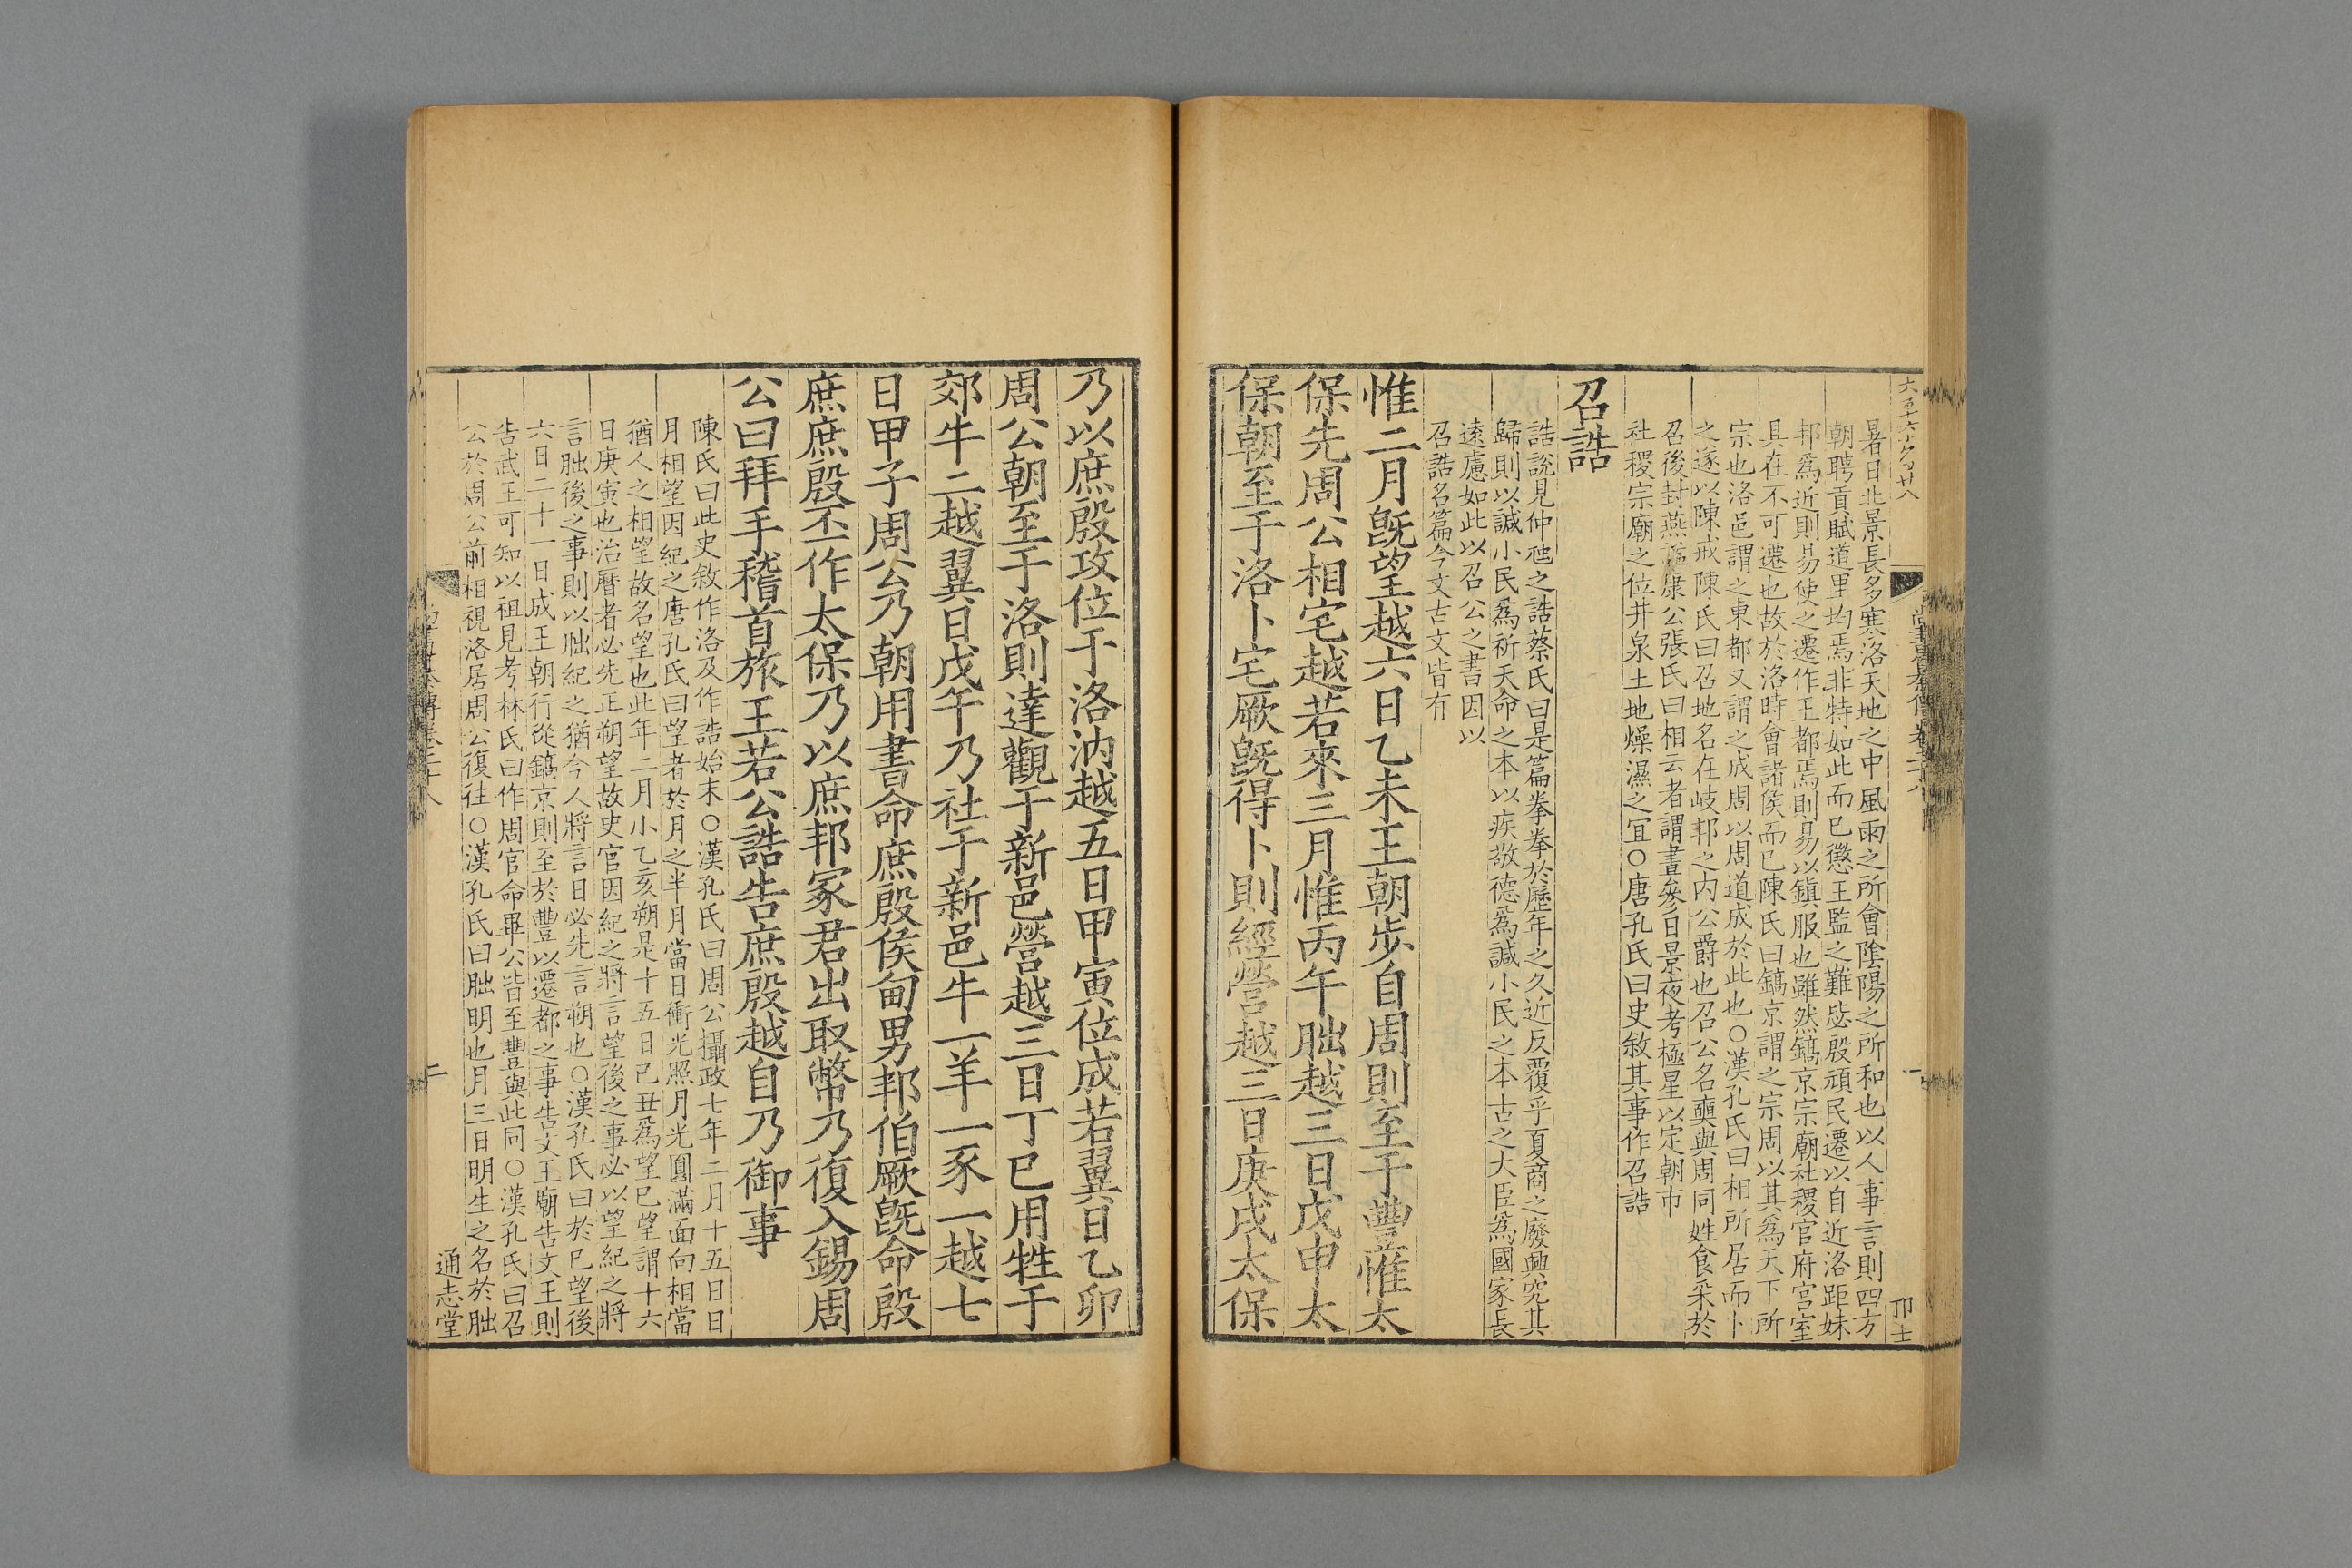 暑日北景長多寒洛天地之中風雨之所會陰陽之所和也以人事言則四方
朝聘貢賦道里均焉非特如此而已懲王監之難毖殷頑民遷以自近洛距妹
邦爲近則易使之遷作王都焉則易以鎭服也雖然鎬京宗廟社稷官府宮室
具在不可遷也故於洛時會諸侯而已陳氏曰鎬京謂之宗周以其爲天下所
宗也洛邑謂之東都又謂之成周以周道成於此也○漢孔氏曰相所居而卜
之遂以陳戒陳氏曰召地名在岐邦之内公爵也召公名奭與周同姓食采於
召後封燕謚康公張氏曰相云者謂晝參日景夜考極星以定朝市
社稷宗廟之位井泉土地燥濕之宜○唐孔氏曰史敘其事作召誥
召誥
誥說見仲虺之誥蔡氏曰是篇拳拳於歷年之久近反覆乎夏商之廢興究其
歸則以諴小民爲祈天命之本以疾敬德爲諴小民之本古之大臣爲國家長
遠慮如此以召公之書因以
召誥名篇今文古文皆有
惟二月旣望越六日乙未王朝步自周則至于豐惟太
保先周公相宅越若來三月惟丙午朏越三日戊申太
保朝至于洛卜宅厥旣得卜則經營越三日庚戌太保
乃以庶殷攻位于洛汭越五日甲寅位成若翼日乙卯
周公朝至于洛則達觀于新邑營越三日丁巳用牲于
郊牛二越翼日戊午乃社于新邑牛一羊一豕一越七
日甲子周公乃朝用書命庶殷侯甸男邦伯厥旣命殷
庶庶殷丕作太保乃以庶邦冢君出取幣乃復入錫周
公曰拜手稽首旅王若公誥告庶殷越自乃御事
陳氏曰此史敘作洛及作誥始末○漢孔氏曰周公攝政七年二月十五日日
月相望因紀之唐孔氏曰望者於月之半月當日衝光照月光圓滿面向相當
猶人之相望故名望也此年二月小乙亥朔是十五日己丑爲望已望謂十六
日庚寅也治曆者必先正朔望故史官因紀之將言望後之事必以望紀之將
言朏後之事則以朏紀之猶今人將言日必先言朔也○漢孔氏曰於已望後
六日二十一日成王朝行從鎬京則至於豐以遷都之事告文王廟告文王則
告武王可知以祖見考林氏曰作周官命畢公皆至豐與此同○漢孔氏曰召
公於周公前相視洛居周公復往○漢孔氏曰朏明也月三日明生之名於朏
二
通志堂